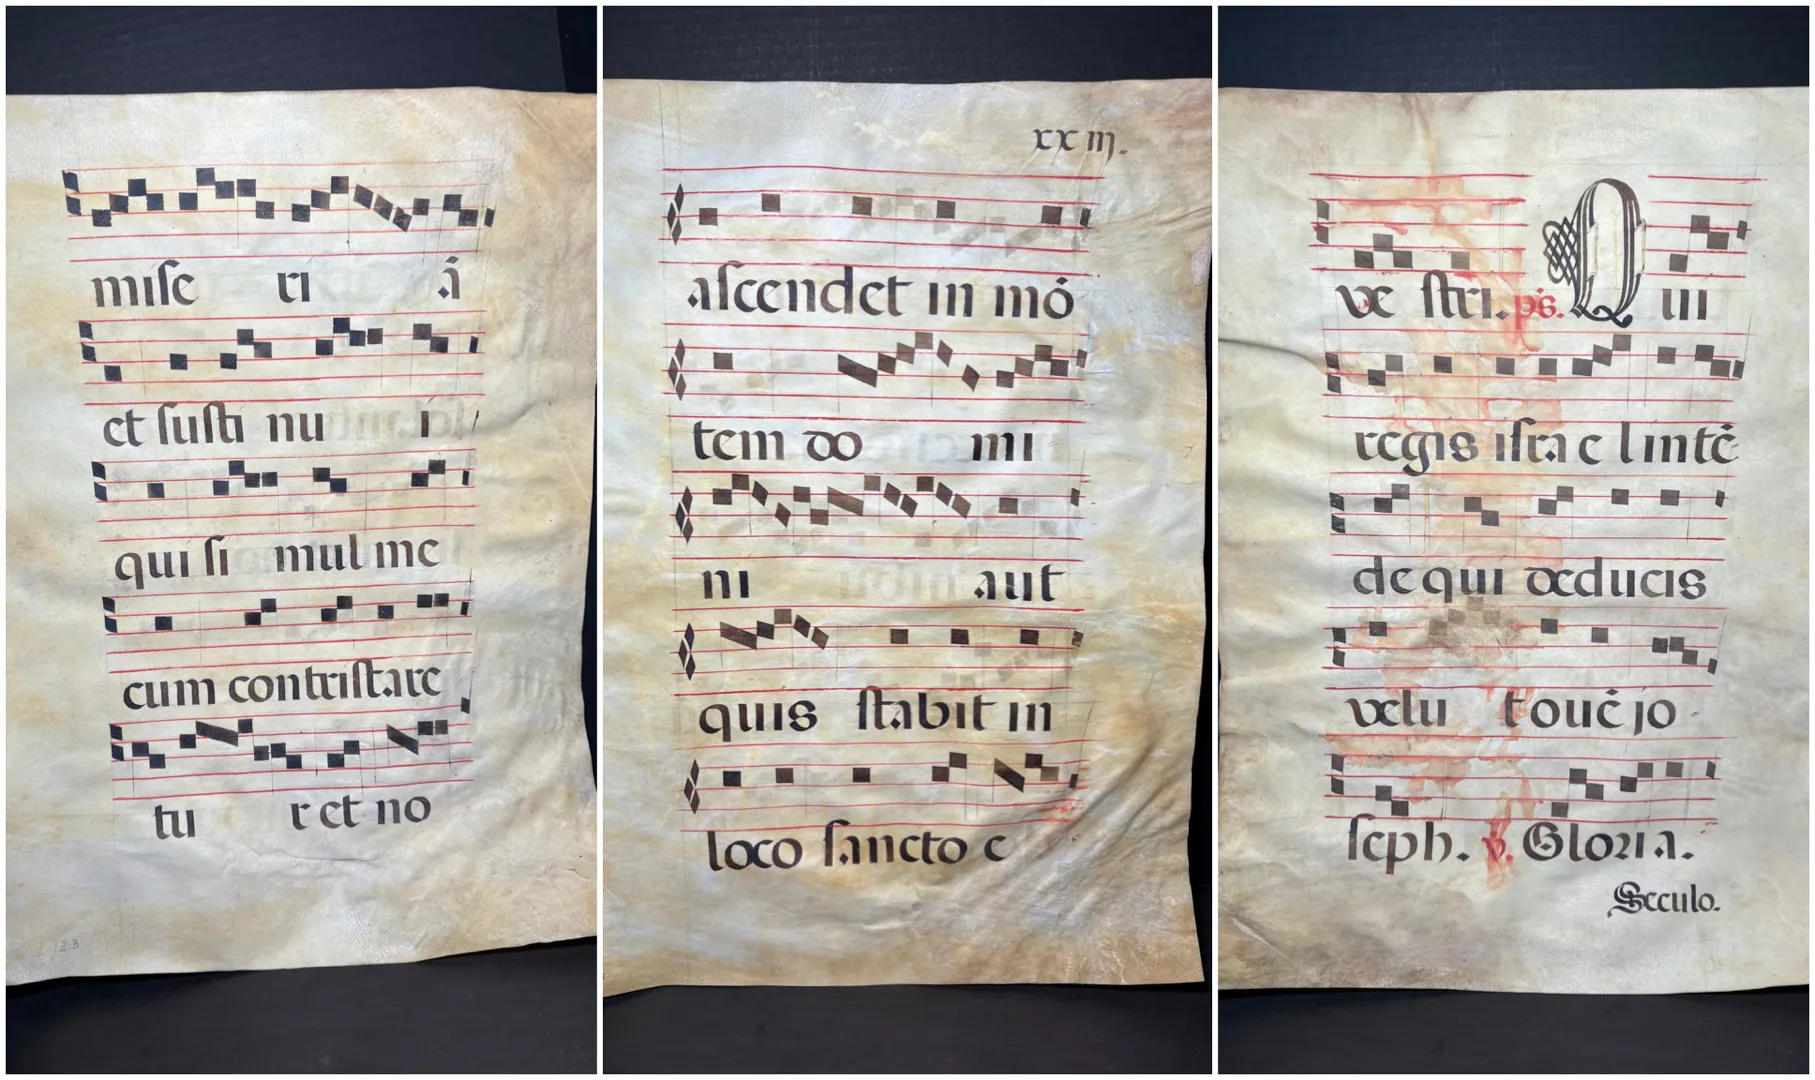 miſe ri ā
et ſuſti nu i
qui ſi mul me
cum contriſtare
tu r et no
123
xx iij.
aſcendet in mō
tem do mi
ni aut
quis ſtabit in
loco ſancto e
ve ſtri. ps. Q ui
regis iſra e l intē
de qui deducis
velu t ouē jo
ſeph. v. Gloria.
Seculo.